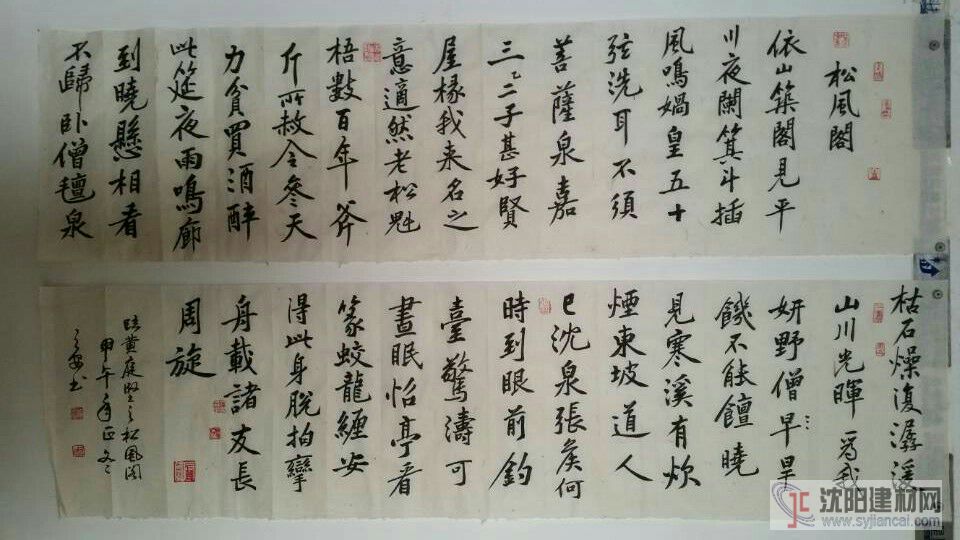 松風閣
依山築閣見平
川夜闌箕斗插
風鳴媧皇五十
弦洗耳不須
菩薩泉嘉
三二三子甚好賢
屋椽我来名之
意適然老松魁
梧數百年斧
斤所赦今參天
力貧買酒醉
此筵夜雨鳴廊
到曉懸相看
不歸卧僧氊泉
枯石燥復潺湲
山川光暉爲我
妍野僧早旱
饑不能饘曉
見寒溪有炊
煙東坡道人
已沈泉張矦何
時到眼前釣
臺驚濤可
晝眠怡亭看
篆蛟龍纏安
得此身脫拘攣
舟載諸友長
周旋
黄庭堅之松風閣
甲午年正
書
沈阳建材网
www.syjiancai.com